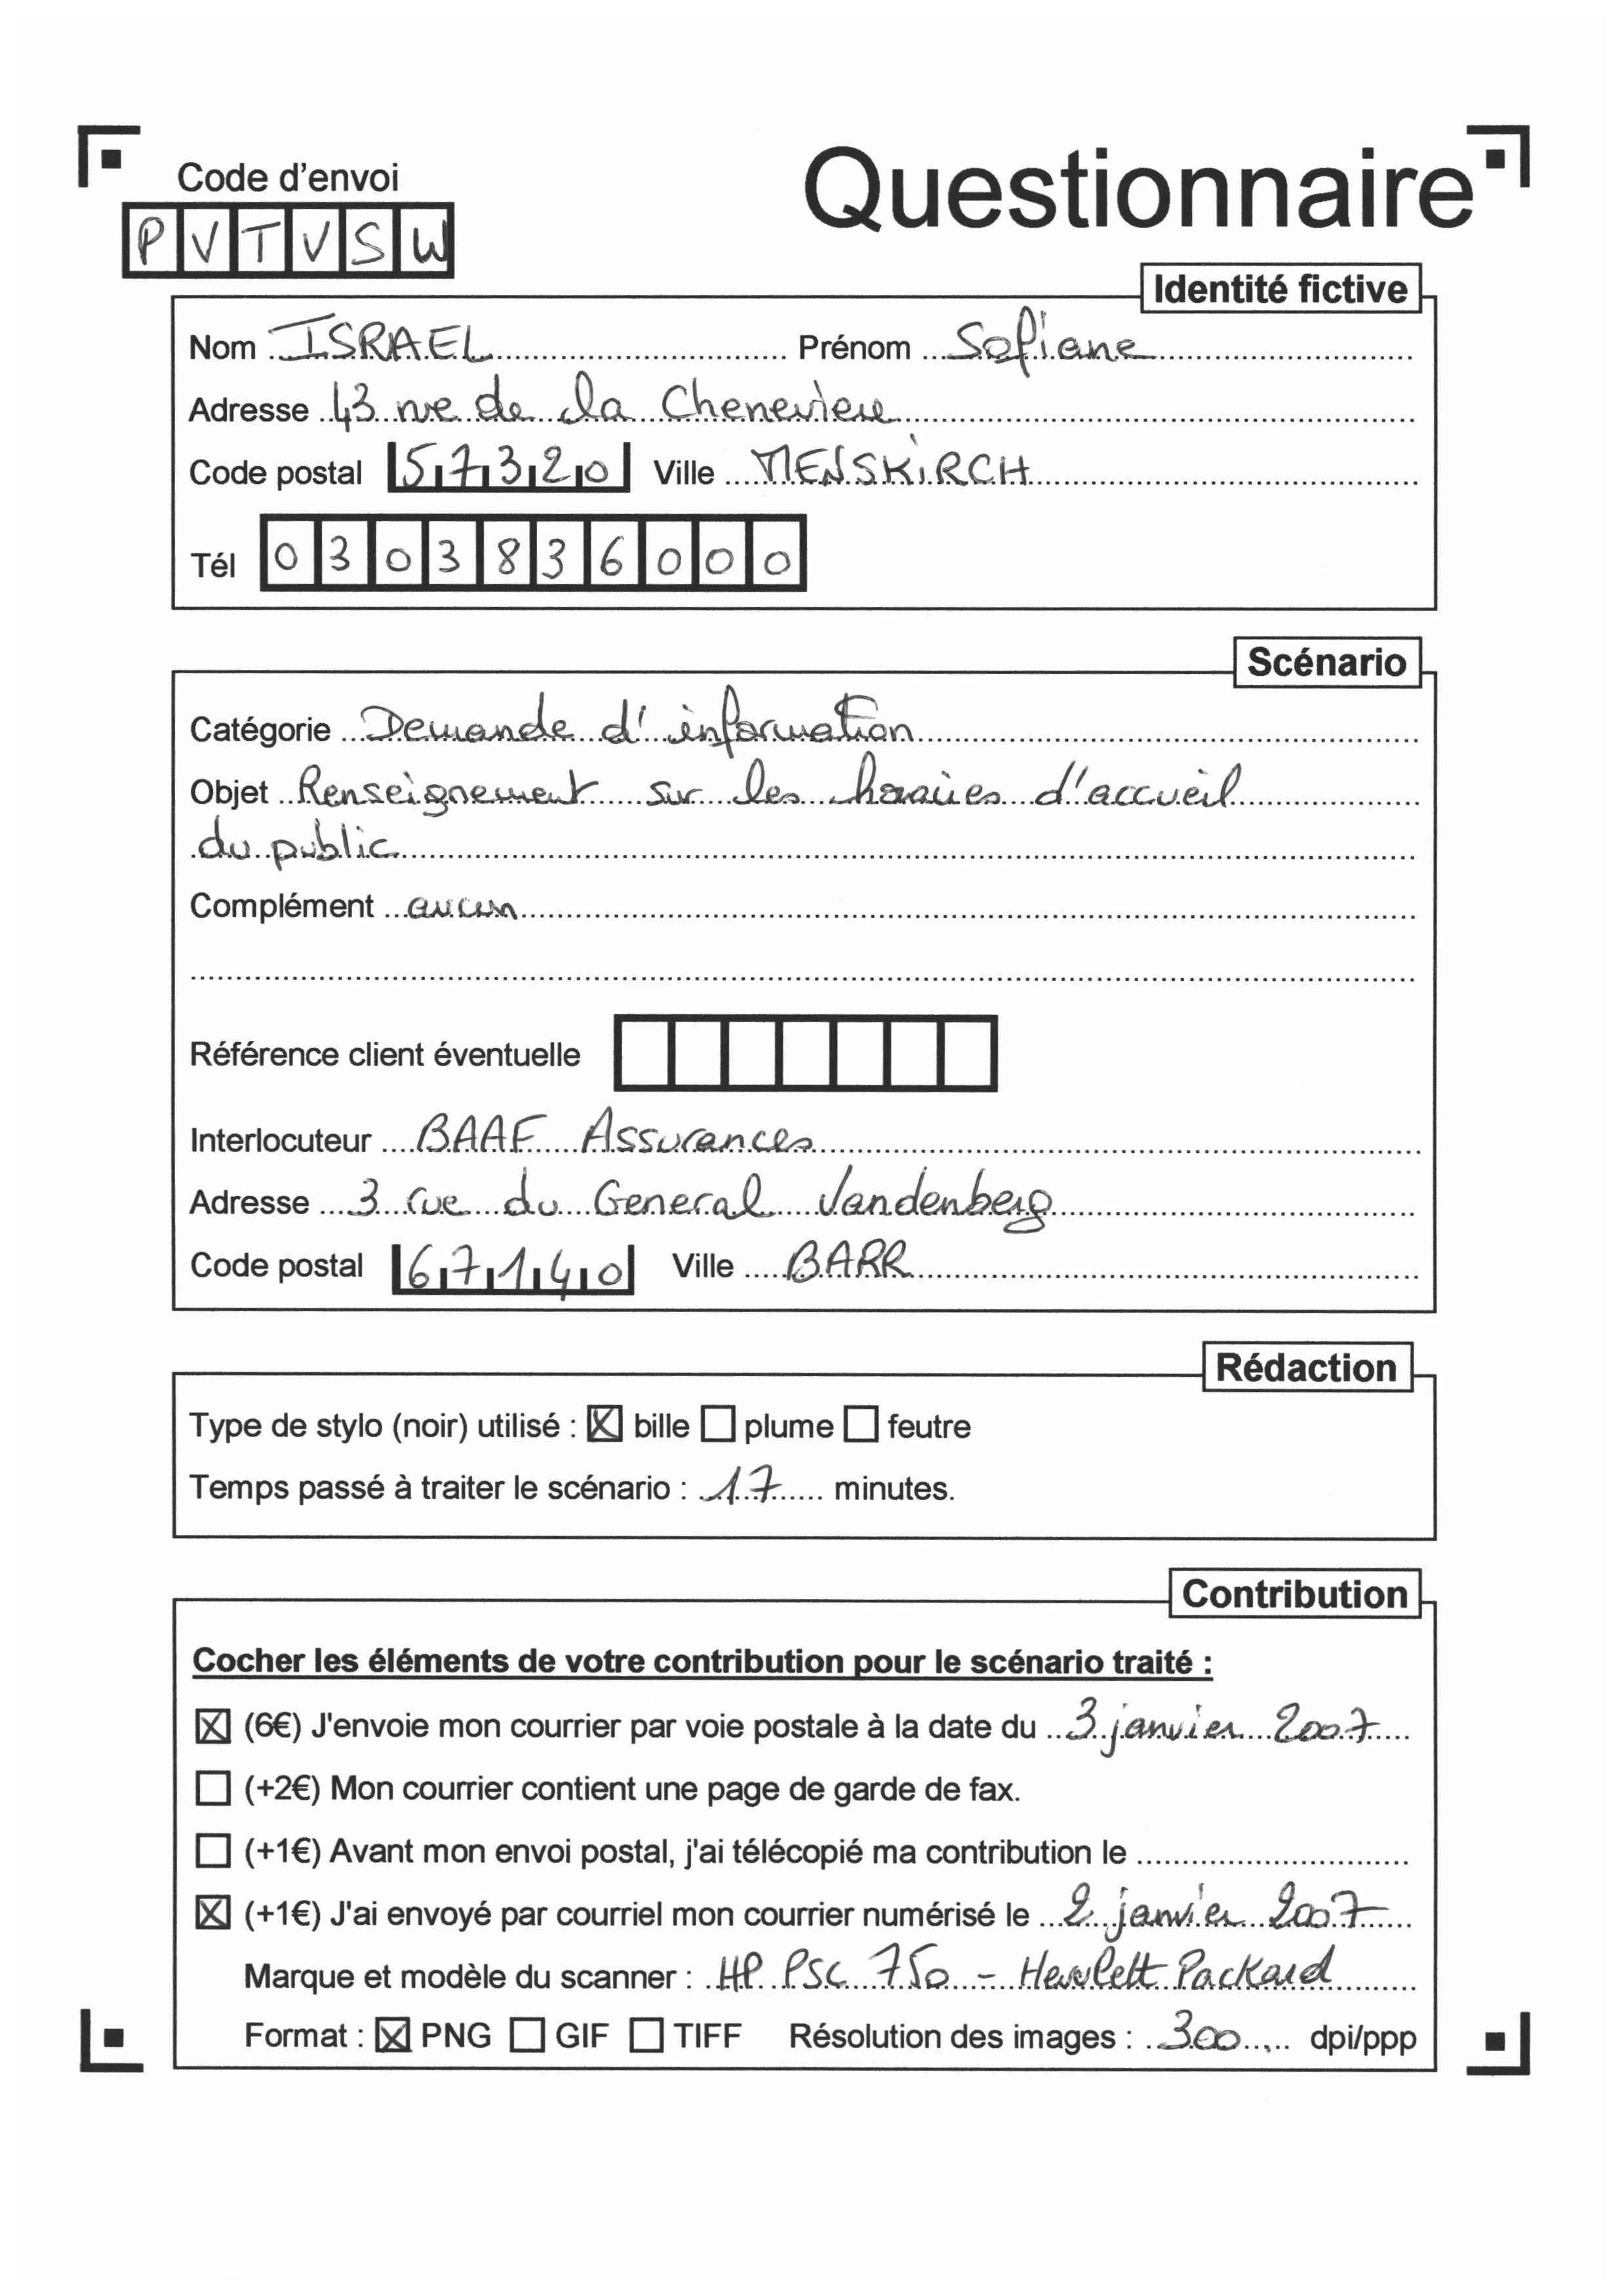 Questionnaire
Code d'envoi
P V T V S W
Identité fictive
Nom ISRAEL Prénom Sofiane
Adresse 43 rue de la Cheneviere
Code postal 57320 Ville MENSKIRCH
Tél 0303836000
Scénario
Catégorie Demande d'information
Objet Renseignement sur les horaires d'accueil
du public
Complément aucun
Référence client éventuelle
Interlocuteur BAAF Assurances
Adresse 3 rue du General Vandenberg
Code postal 67140 Ville BARR
Rédaction
Type de stylo (noir) utilisé : ☒ bille ☐ plume ☐ feutre
Temps passé à traiter le scénario : 17 minutes.
Contribution
Cocher les éléments de votre contribution pour le scénario traité :
☒ (6€) J'envoie mon courrier par voie postale à la date du 3 janvier 2007
☐ (+2€) Mon courrier contient une page de garde de fax.
☐ (+1€) Avant mon envoi postal, j'ai télécopié ma contribution le
☒ (+1€) J'ai envoyé par courriel mon courrier numérisé le 2 janvier 2007
Marque et modèle du scanner : HP PSC 750 - Hewlett Packard
Format : ☒ PNG ☐ GIF ☐ TIFF Résolution des images : 300 dpi/ppp